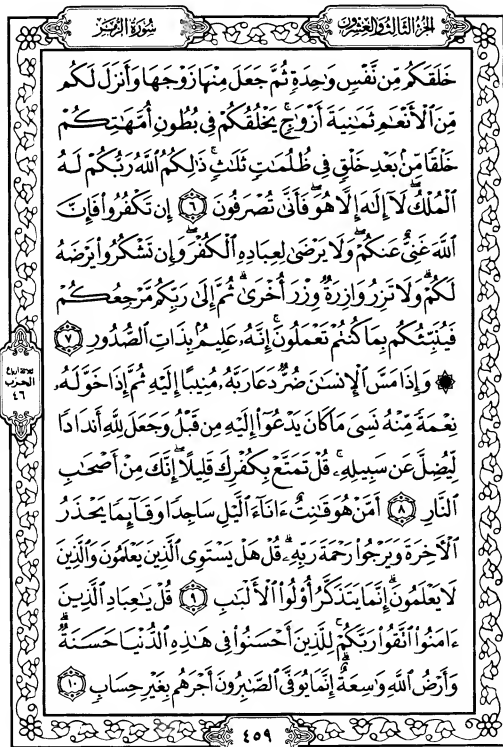 الجزء الثالث والعشرون
سورة الزمر
خَلَقَكُم مِّن نَّفْسٍ وَٰحِدَةٍ ثُمَّ جَعَلَ مِنْهَا زَوْجَهَا وَأَنزَلَ لَكُم
مِّنَ ٱلْأَنْعَٰمِ ثَمَٰنِيَةَ أَزْوَٰجٍ ۚ يَخْلُقُكُمْ فِى بُطُونِ أُمَّهَٰتِكُمْ
خَلْقًا مِّنۢ بَعْدِ خَلْقٍ فِى ظُلُمَٰتٍ ثَلَٰثٍ ۚ ذَٰلِكُمُ ٱللَّهُ رَبُّكُمْ لَهُ
ٱلْمُلْكُ ۖ لَآ إِلَٰهَ إِلَّا هُوَ ۖ فَأَنَّىٰ تُصْرَفُونَ ٦ إِن تَكْفُرُوا۟ فَإِنَّ
ٱللَّهَ غَنِىٌّ عَنكُمْ ۖ وَلَا يَرْضَىٰ لِعِبَادِهِ ٱلْكُفْرَ ۖ وَإِن تَشْكُرُوا۟ يَرْضَهُ
لَكُمْ ۗ وَلَا تَزِرُ وَازِرَةٌ وِزْرَ أُخْرَىٰ ۗ ثُمَّ إِلَىٰ رَبِّكُم مَّرْجِعُكُمْ
فَيُنَبِّئُكُم بِمَا كُنتُمْ تَعْمَلُونَ ۚ إِنَّهُۥ عَلِيمٌۢ بِذَاتِ ٱلصُّدُورِ ٧
۞ وَإِذَا مَسَّ ٱلْإِنسَٰنَ ضُرٌّ دَعَا رَبَّهُۥ مُنِيبًا إِلَيْهِ ثُمَّ إِذَا خَوَّلَهُۥ
نِعْمَةً مِّنْهُ نَسِىَ مَا كَانَ يَدْعُوٓا۟ إِلَيْهِ مِن قَبْلُ وَجَعَلَ لِلَّهِ أَندَادًا
لِّيُضِلَّ عَن سَبِيلِهِۦ ۚ قُلْ تَمَتَّعْ بِكُفْرِكَ قَلِيلًا ۖ إِنَّكَ مِنْ أَصْحَٰبِ
ٱلنَّارِ ٨ أَمَّنْ هُوَ قَٰنِتٌ ءَانَآءَ ٱلَّيْلِ سَاجِدًا وَقَآئِمًا يَحْذَرُ
ٱلْءَاخِرَةَ وَيَرْجُوا۟ رَحْمَةَ رَبِّهِۦ ۗ قُلْ هَلْ يَسْتَوِى ٱلَّذِينَ يَعْلَمُونَ وَٱلَّذِينَ
لَا يَعْلَمُونَ ۗ إِنَّمَا يَتَذَكَّرُ أُو۟لُوا۟ ٱلْأَلْبَٰبِ ٩ قُلْ يَٰعِبَادِ ٱلَّذِينَ
ءَامَنُوا۟ ٱتَّقُوا۟ رَبَّكُمْ ۚ لِلَّذِينَ أَحْسَنُوا۟ فِى هَٰذِهِ ٱلدُّنْيَا حَسَنَةٌ ۗ
وَأَرْضُ ٱللَّهِ وَٰسِعَةٌ ۗ إِنَّمَا يُوَفَّى ٱلصَّٰبِرُونَ أَجْرَهُم بِغَيْرِ حِسَابٍ ١٠
ثلاثة أرباع
الحزب
٤٦
٤٥٩